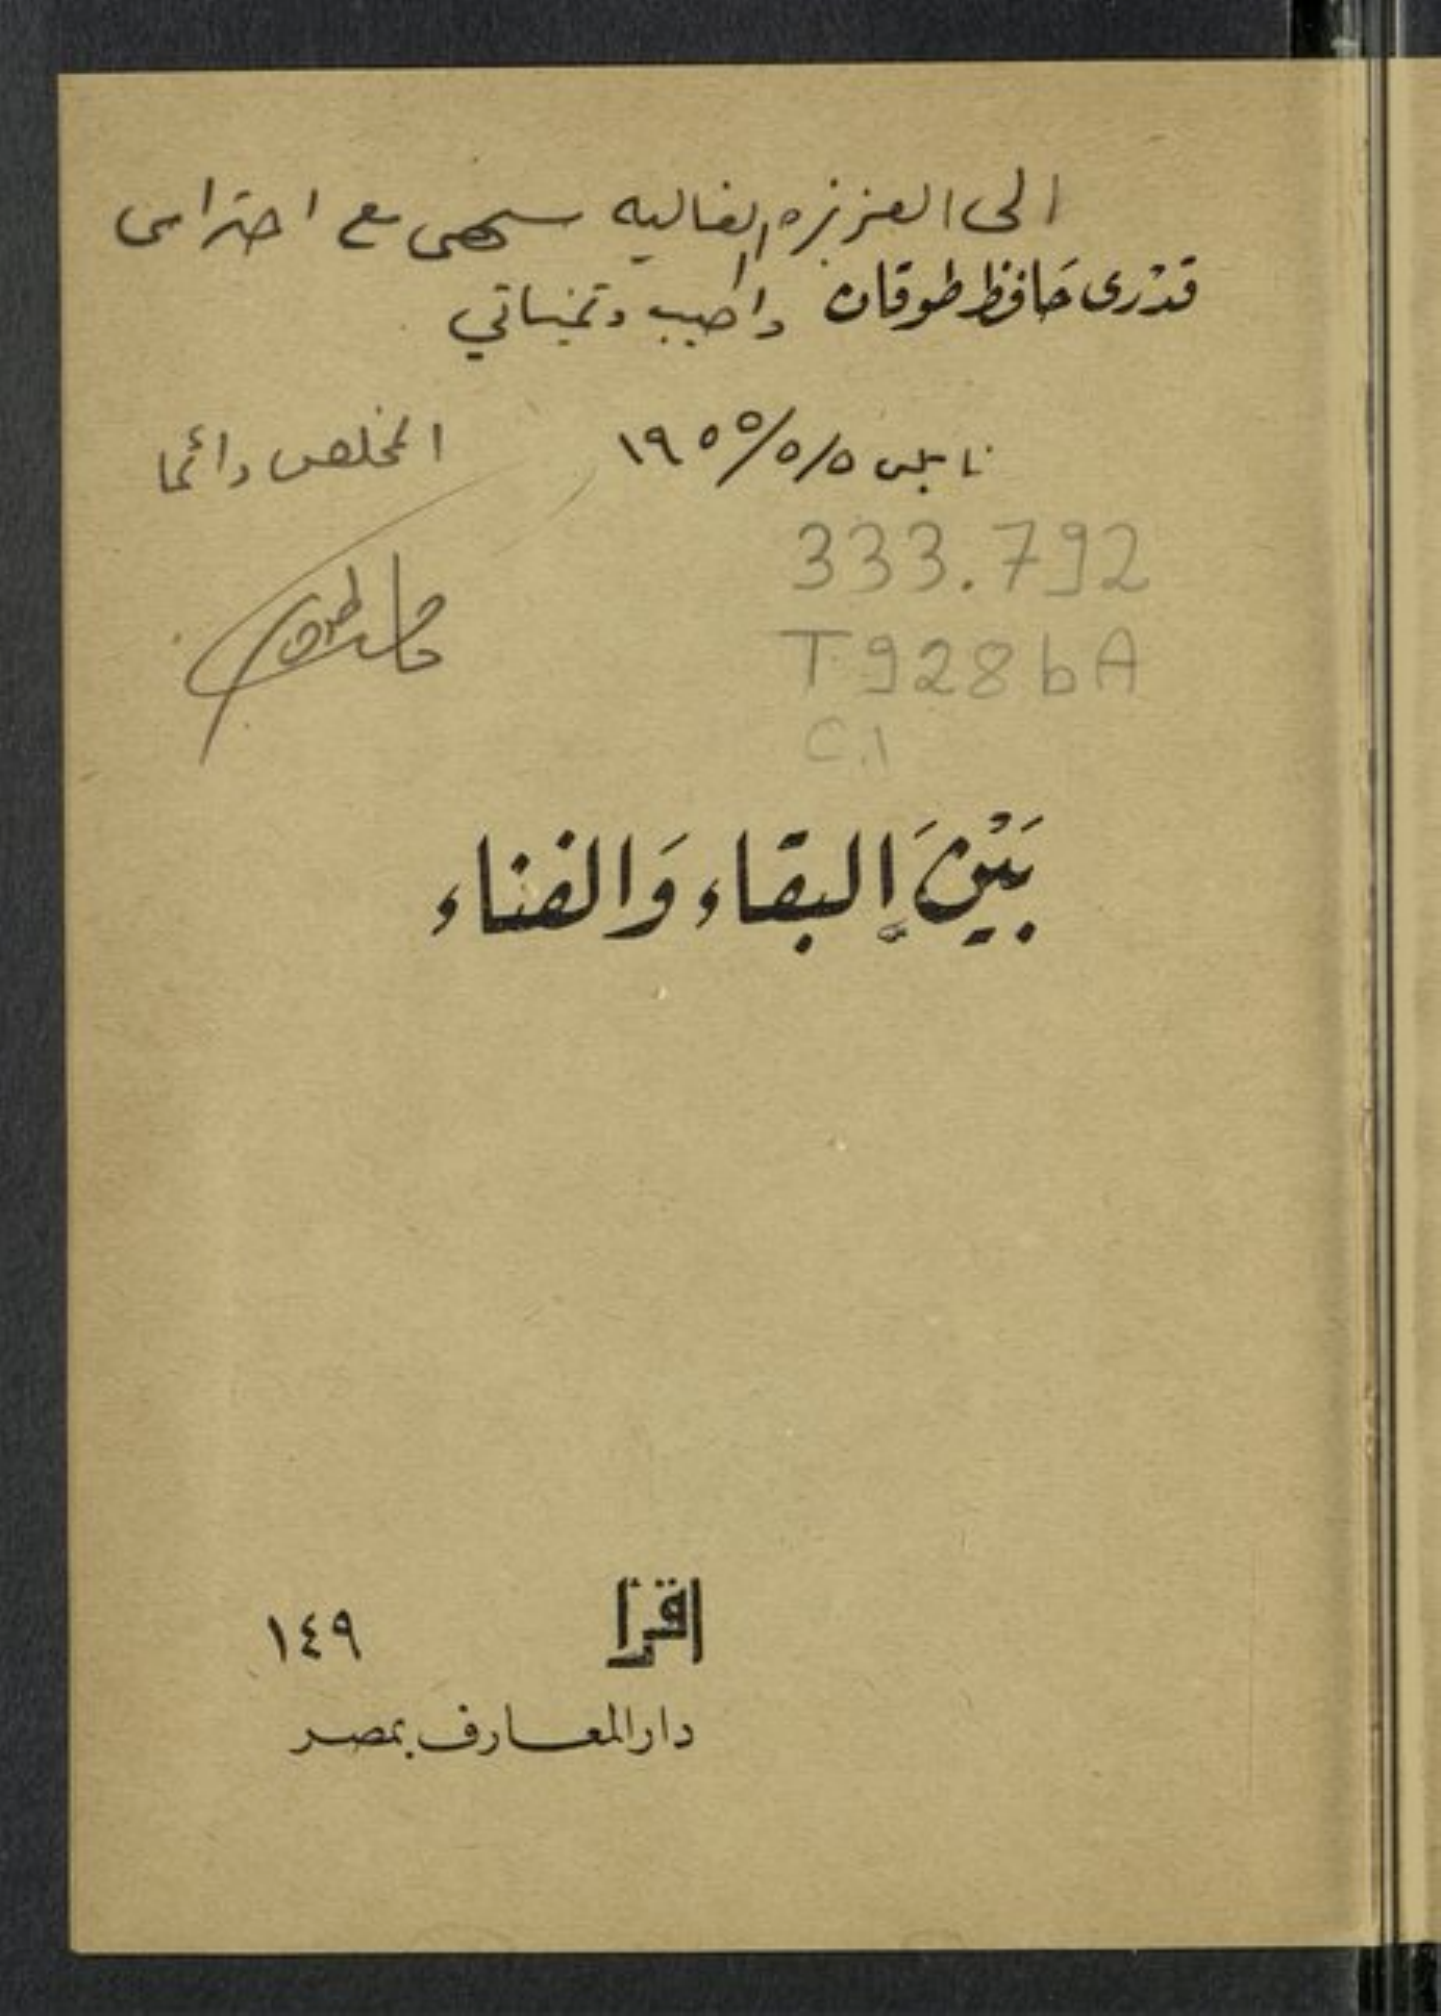 الى العزيزه الغاليه سهى مع احترامى
قدْرى حَافظ طوقان واطيب وتمنياتي
نابلس ٥/٥/١٩٥٥ المخلص دائما
333.792
T928bA
C.1
بَيْنَ البقاء وَالفناء
اقرأ ١٤٩
دار المعارف بمصر